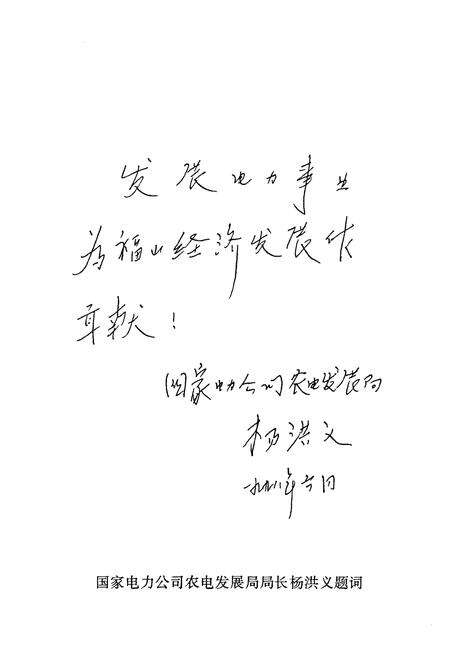 发展电力事业
为福山经济发展作
贡献！
国家电力公司农电发展局
杨洪义
一九九八年六月
国家电力公司农电发展局局长杨洪义题词